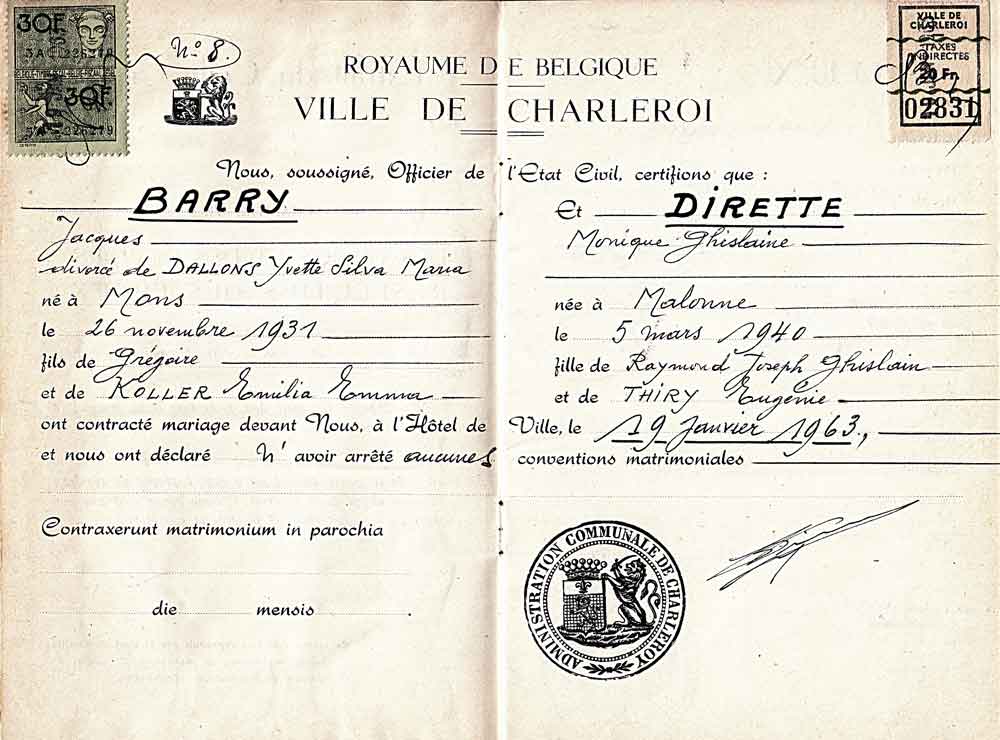 30F
5A 226279
30F
5A 226279
N° 8.
ROYAUME DE BELGIQUE
VILLE DE CHARLEROI
VILLE DE
CHARLEROI
TAXES
INDIRECTES
20 Fr
02831
Nous, soussigné, Officier de l'Etat Civil, certifions que :
BARRY
Jacques
divorcé de DALLONS Yvette Silva Maria
né à Mons
le 26 novembre 1931
fils de Grégoire
et de KOLLER Emilia Emma
Et DIRETTE
Monique Ghislaine
née à Malonne
le 5 mars 1940
fille de Raymond Joseph Ghislain
et de THIRY Eugénie
ont contracté mariage devant Nous, à l'Hôtel de Ville, le 19 Janvier 1963.,
et nous ont déclaré n'avoir arrêté aucunes conventions matrimoniales
Contraxerunt matrimonium in parochia
die mensis .
ADMINISTRATION COMMUNALE DE CHARLEROY